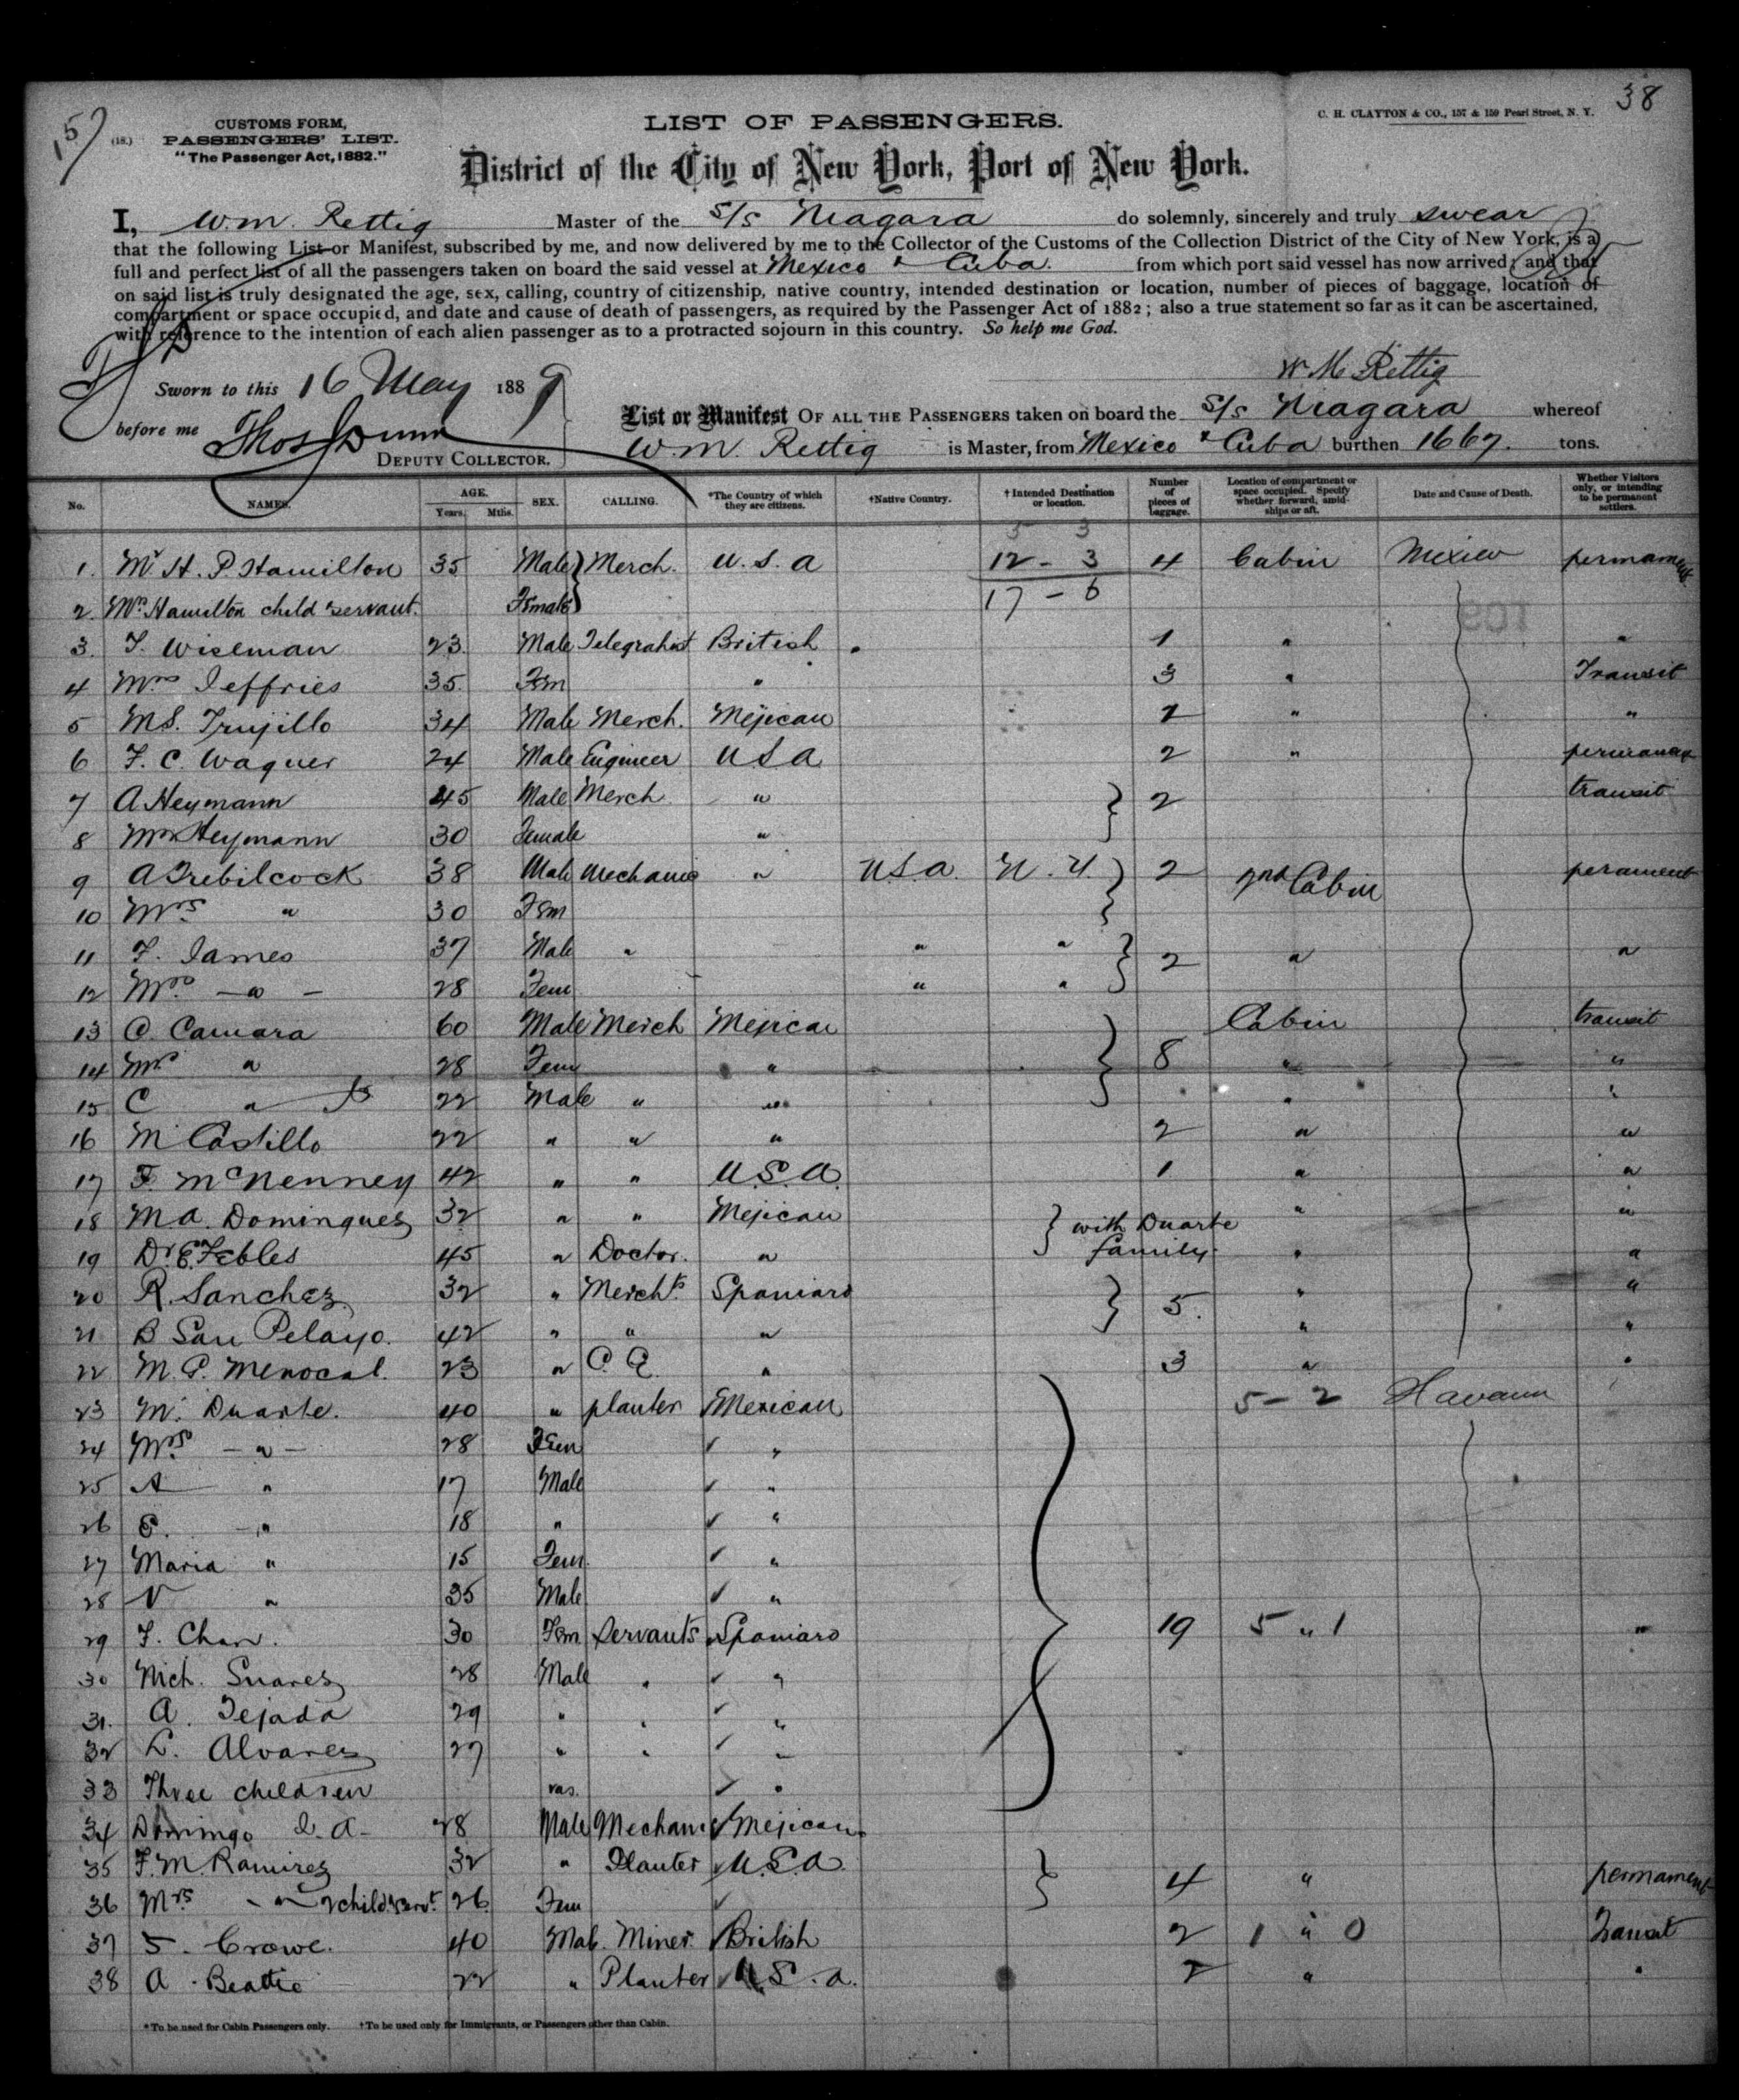 38
157
(18.)
CUSTOMS FORM,
PASSENGERS' LIST.
"The Passenger Act, 1882."
LIST OF PASSENGERS.
C. H. CLAYTON & CO., 157 & 159 Pearl Street, N. Y.
District of the City of New York, Port of New York.
I, W.M. Rettig Master of the S/S Niagara do solemnly, sincerely and truly swear
that the following List or Manifest, subscribed by me, and now delivered by me to the Collector of the Customs of the Collection District of the City of New York, is a
full and perfect list of all the passengers taken on board the said vessel at Mexico & Cuba. from which port said vessel has now arrived; and that
on said list is truly designated the age, sex, calling, country of citizenship, native country, intended destination or location, number of pieces of baggage, location of
compartment or space occupied, and date and cause of death of passengers, as required by the Passenger Act of 1882; also a true statement so far as it can be ascertained,
with reference to the intention of each alien passenger as to a protracted sojourn in this country. So help me God.
W. M. Rettig
Sworn to this 16 May 1889
before me Thos Dunn
DEPUTY COLLECTOR.
List or Manifest OF ALL THE PASSENGERS taken on board the S/S Niagara whereof
W. M. Rettig is Master, from Mexico & Cuba burthen 1667. tons.
No. NAMES. AGE. Years. Mths. SEX. CALLING. *The Country of which they are citizens. †Native Country. †Intended Destination or location. Number of pieces of baggage. Location of compartment or space occupied. Specify whether forward, amidships or aft. Date and Cause of Death. Whether Visitors only, or intending to be permanent settlers.
5 3
1. Mr H. P. Hamilton 35 Male Merch. U.S.A 12 - 3 4 Cabin Mexico permament
2. Mrs Hamilton child servant. Female 17 - 6
3. F. Wiseman 23. Male Telegrahist British 1 " "
4 Mrs Jeffries 35. Fem " 3 " Transit
5 M S. Trujillo 34 Male Merch. Mejican 2 " "
6 F. C. Wagner 24 Male Engineer U S A 2 "
7 A Heymann 45 Male Merch " } 2 transit
8 Mrs Heymann 30 Female "
9 A Trebilcock 38 Male Mechanic " U.S.a. N.Y. } 2 2nd Cabin perament
10 Mrs " 30 Fem
11 F. James 37 Male " " " } 2 " "
12 Mrs - " - 28 Fem " "
13 C. Camara 60 Male Merch Mejican } Cabin transit
14 Mrs " 28 Fem " 8 " "
15 C " 22 Male " " " "
16 M Castillo 22 " " " 2 " "
17 F. McNenney 42 " " U.S.A. 1 " "
18 M A. Dominguez 32 " " Mejican } with Duarte " "
19 Dr E. Febles 45 " Doctor. " family. " "
20 R. Sanchez 32 " Mercht. Spaniard } 5. " "
21 B San Pelayo. 42 " " " " "
22 M. P. Menocal. 23 " C. E. " 3 " "
23 M. Duarte. 40 " planter Mexican 5 - 2 Havana
24 Mrs - " - 28 Fem "
25 A " 17 Male "
26 E. " 18 " "
27 Maria " 15 Fem. "
28 V " 35 Male "
29 F. Chan. 30 Fem Servants Spaniard 19 5 " 1 "
30 Nich. Suarez 28 Male " "
31. A. Tejada 29 " " "
32 L. Alvarez 27 " " "
33 Three children "
34 Domingo 28 Male Mechanic Mejican
35 F. M. Ramirez 32 " Planter U.S.A. } 4 " permament
36 Mrs - " 2 child & servt. 26 Fem
37 S. Crowe. 40 Male. Miner. British 2 1 " 0 Transit
38 A. Beattie 22 " Planter U.S.a. 2 " "
*To be used for Cabin Passengers only. †To be used only for Immigrants, or Passengers other than Cabin.